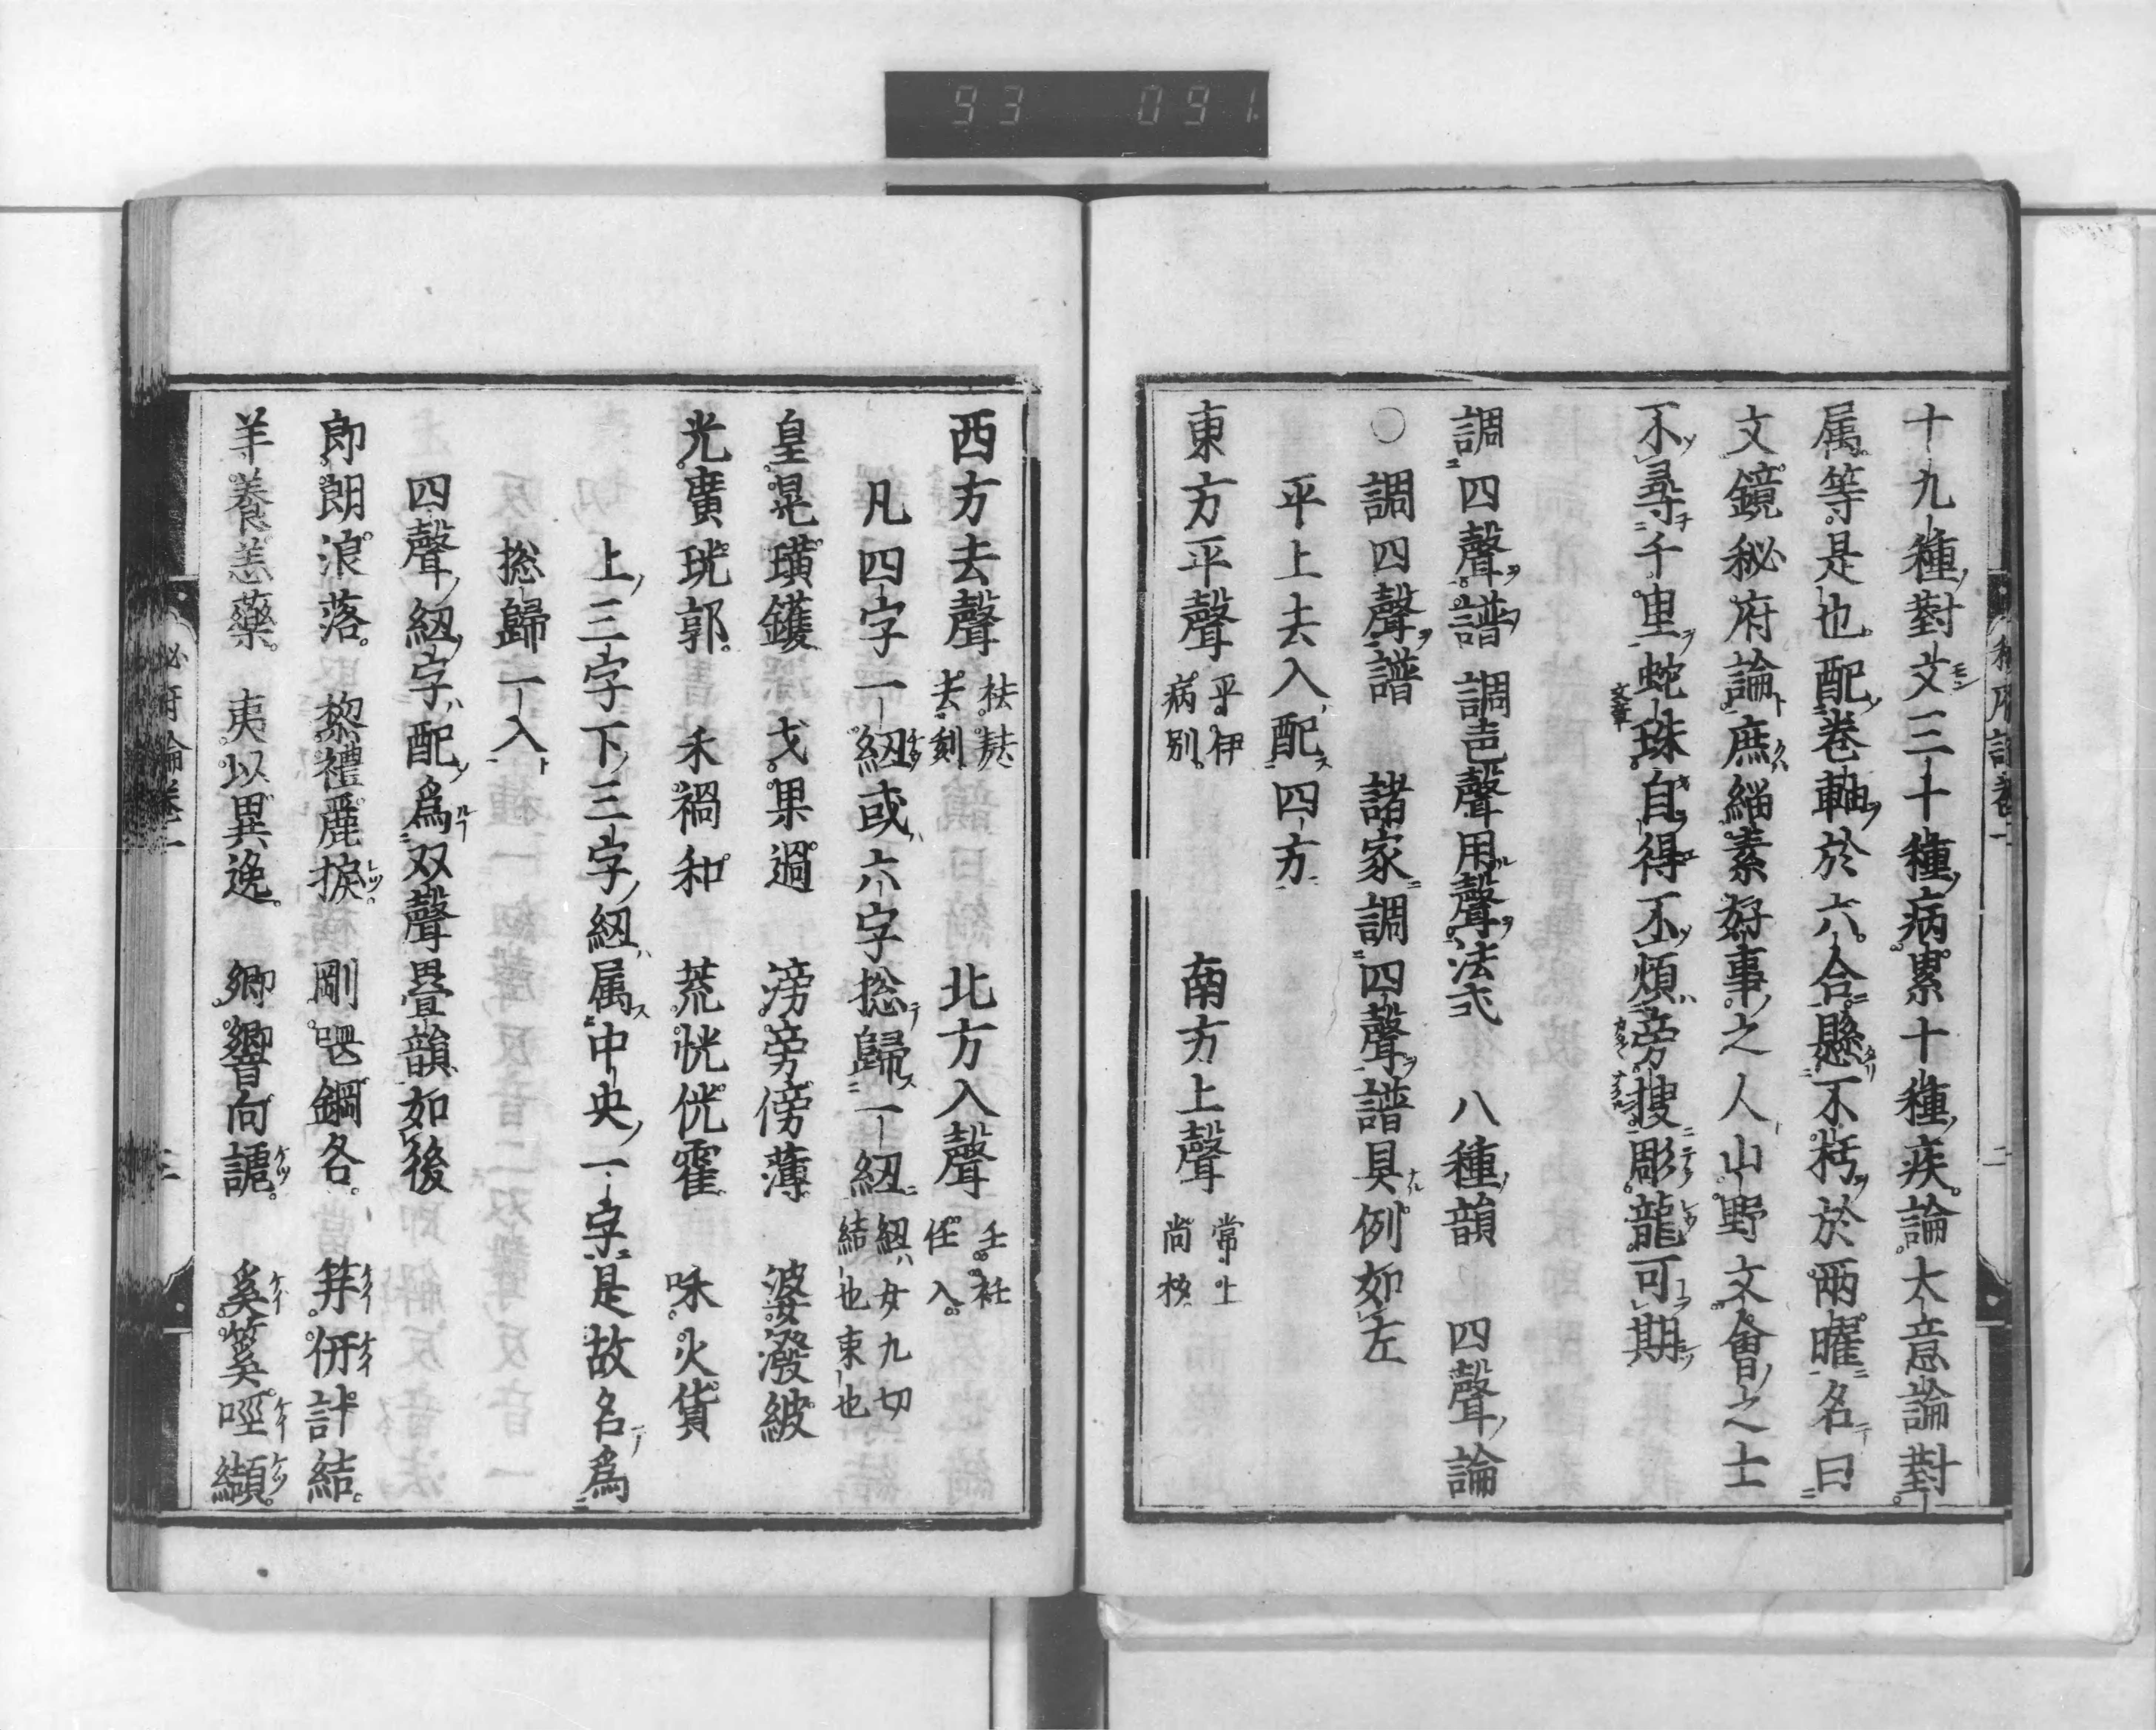 93 091
十九種對文三十種病累十種疾論太意論對
属等是也配卷軸於六合懸不朽於兩曜名曰
文鏡秘府論庶緇素好事之人山野文會之士
不尋千里蛇珠自得不煩旁捜彫龍可期
調四聲譜 調聲用聲法式 八種韻 四聲論
○調四聲譜 諸家調四聲譜具例如左
平上去入配四方
東方平聲 平伊病別 南方上聲 常上尚杉
西方去聲 祛麩去刻 北方入聲 壬衽任入
凡四字一紐或六字捴歸一紐 紐女九切結也束也
皇晃璜鑊 戈果過 滂旁傍薄 婆潑紴
光廣珖郭 禾禍和 荒恍侊霍 咊火貨
上三字下三字紐属中央一字是故名爲
捴歸一入
四聲紐字配爲双聲畳韻如後
郎朗浪落 黎禮麗捩 剛㖛鋼各 笄併計結
羊養恙藥 夷以異逸 卿響向謔 奚篊咥纈
秘府論卷一 二
秘府論卷一 三